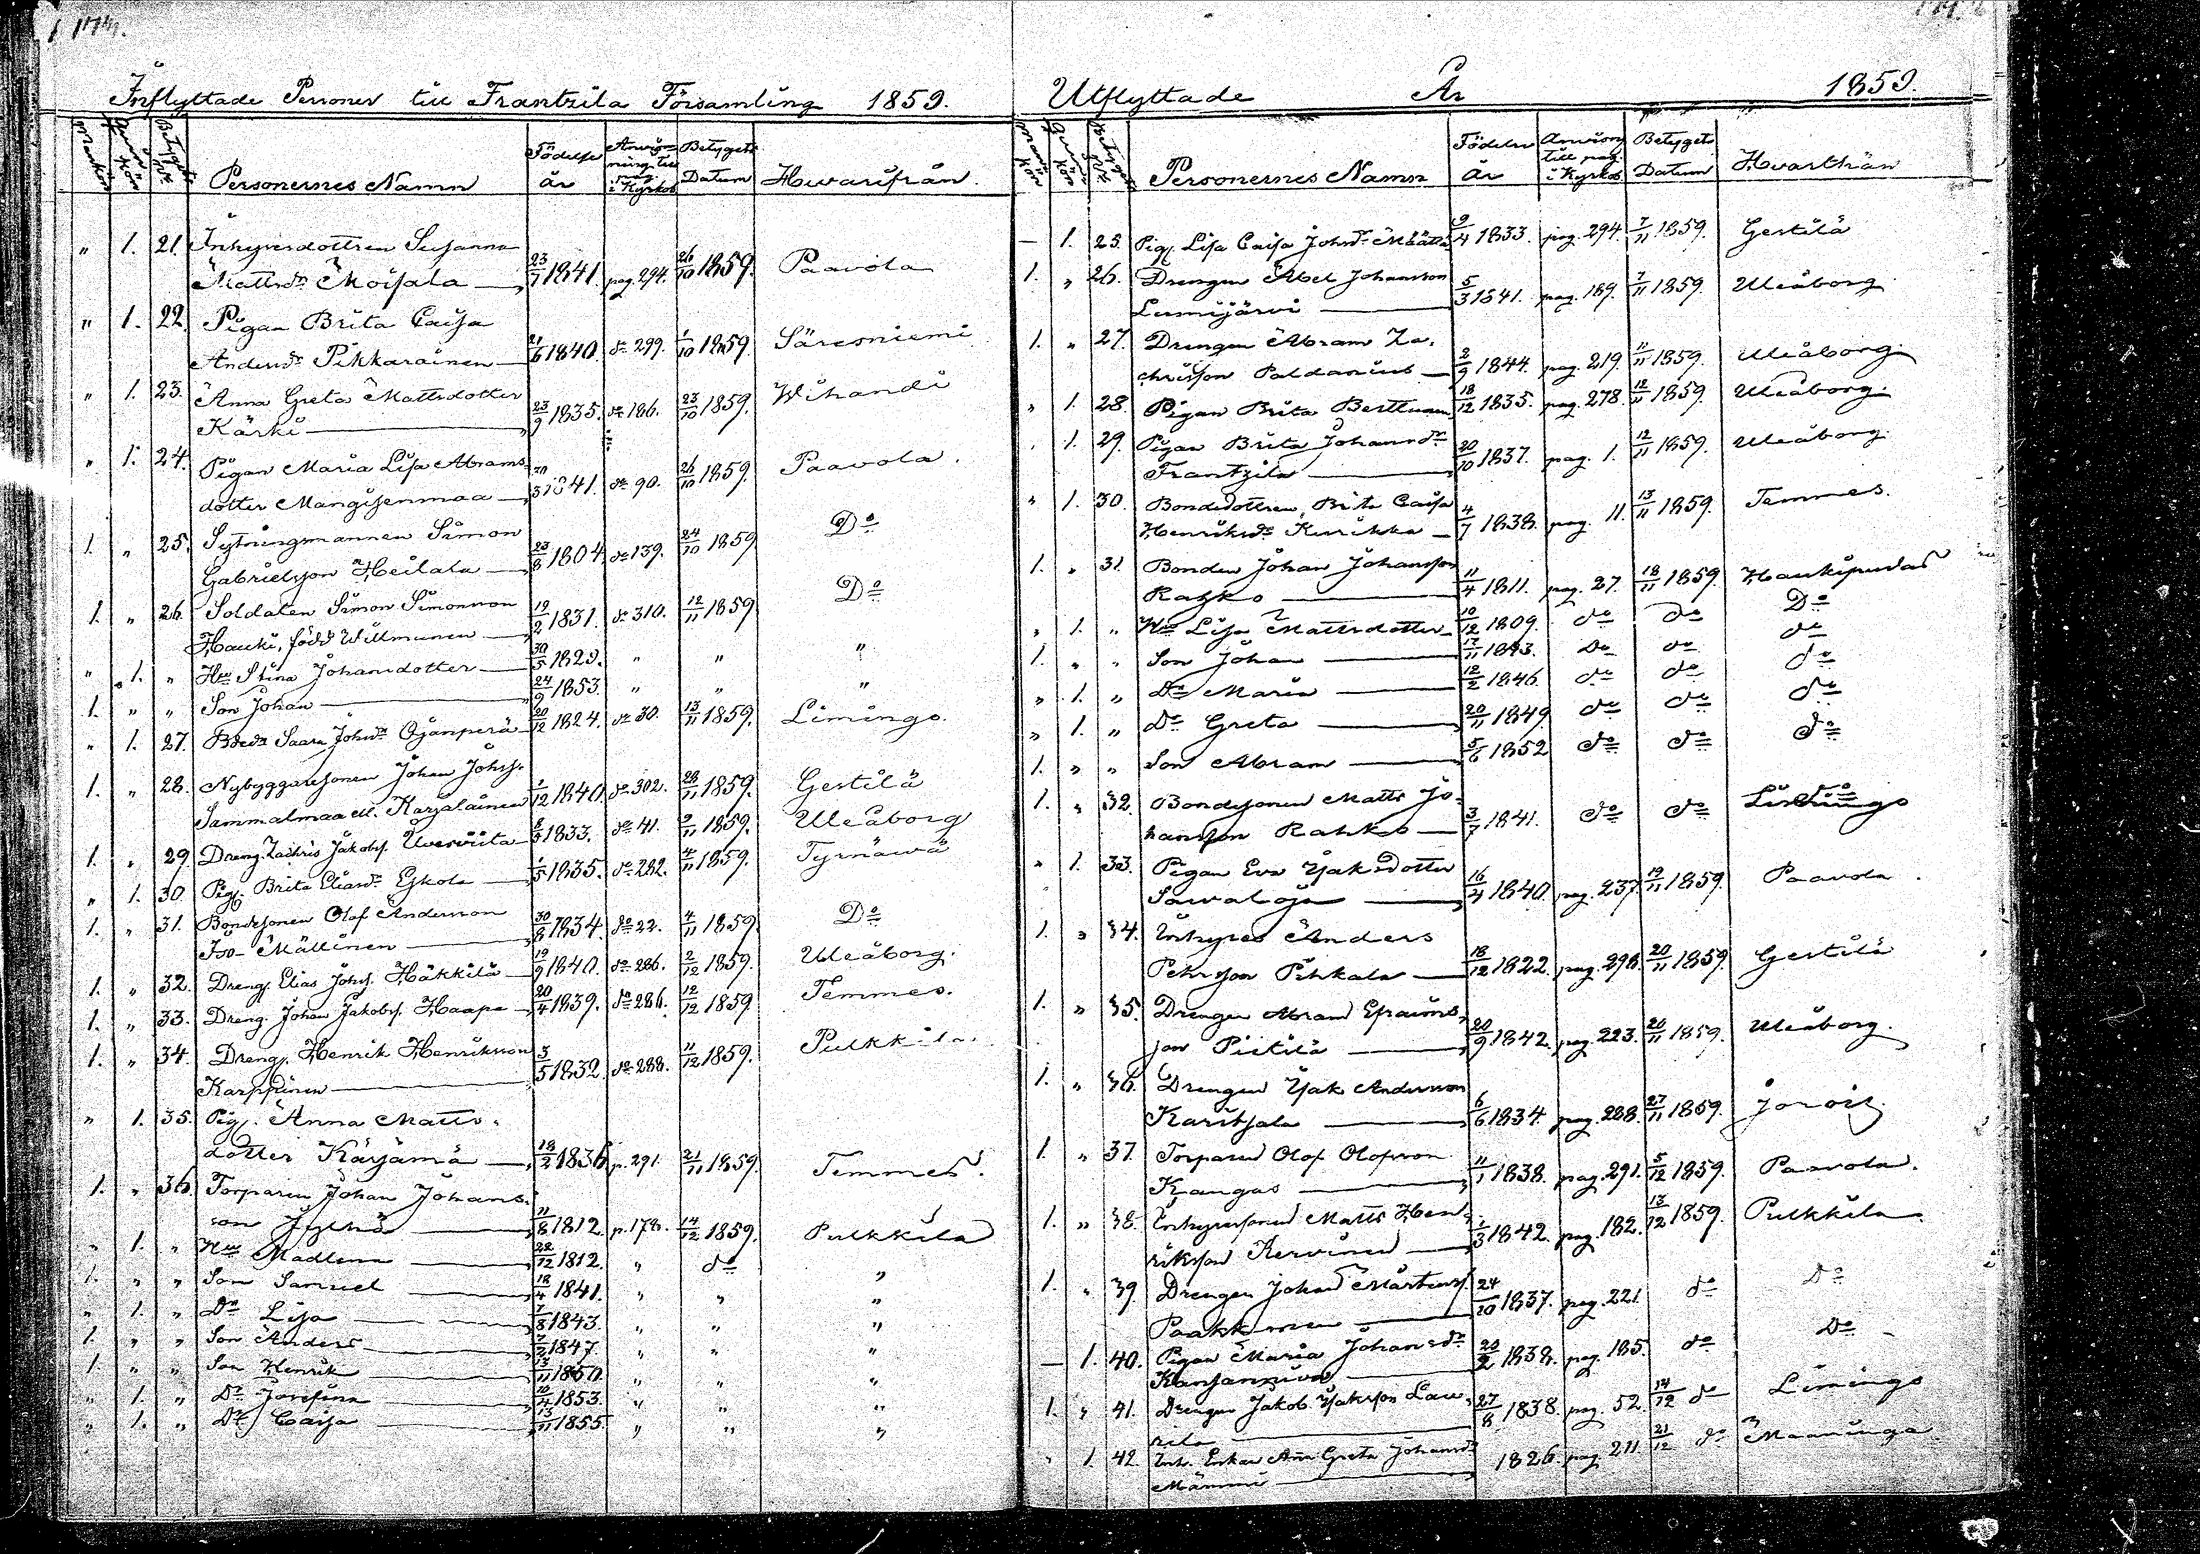 Inflyttade Personer till Frantzila Församling 1859.
Mankön Qvinnkön Betygets No Personernes Namn Födelse år Anvisning till pag. i Kyrkob Betygets Datum Hvarifrån.
" 1. 21. Inhysesdottren Susanna
Mattsdr Moisala 23/7 1841. pag. 294. 26/10 1859. Paavola
" 1. 22. Pigan Brita Caisa
Andersdr Pikkarainen 21/6 1840. do 299. 1/10 1859. Säresniemi
" 1. 23. Anna Greta Mattsdotter
Kärki 23/9 1835. do 186. 23/10 1859. Wihandi
" 1. 24. Pigan Maria Lisa Abrams
dotter Mangisenmaa 20/3 1841. do 90. 26/10 1859. Paavola.
1. " 25. Sytningsmannen Simon
Gabrielsson Heilala 23/8 1804. do 139. 24/10 1859 Do
1. " 26. Soldaten Simon Simonsson
Hauki, född Willmunen 19/2 1831. do 310. 12/11 1859 Do
" 1. " Hu Stina Johansdotter 30/5 1829. " " "
1. " " Son Johan 24/9 1853. " " "
" 1. 27. Bdedr Saara Johsdr Ojanperä 20/12 1824. do 30. 13/11 1859. Limingo.
1. " 28. Nybyggaresonen Johan Johss.
Sammalmaa ell. Karjalainen 1/12 1840. do 302. 28/11 1859. Gestilä
1. " 29. Dreng. Zachris Jakobs. Uvesviita 8/9 1833. do 41. 9/11 1859. Uleåborg
" 1. 30. Pig. Brita Eliasdr Eskola 1/5 1835. do 282. 4/11 1859. Tyrnäwä
1. " 31. Bondesonen Olof Andersson
Iso-Mällinen 30/8 1834. do 22. 4/11 1859. Do
1. " 32. Dreng. Elias Johss. Häkkilä 19/9 1840. do 286. 2/12 1859. Uleåborg.
1. " 33. Dreng. Johan Jakobs. Haapa 20/4 1839. do 286. 12/12 1859. Temmes.
1. " 34. Dreng. Henrik Henriksson
Karppinen 3/5 1832. do 288. 11/12 1859. Pulkkila.
" 1. 35. Pig. Anna Matts-
dotter Kärjämä 18/2 1836. p. 291. 21/11 1859. Temmes.
1. " 36. Torparen Johan Johans-
son 11/8 1812. p. 178. 14/12 1859. Pulkkila
" 1. " Hu Madlena 22/12 1812. " do "
1. " " Son Samuel 18/4 1841. " " "
" 1. " Dr Lisa 7/8 1843. " " "
1. " " Son Anders 7/2 1847. " " "
1. " " Son Henrik 13/11 1850. " " "
" 1. " Dr Josefina 10/4 1853. " " "
" 1. " Dr Caisa 13/11 1855. " " "
Utflyttade År 1859.
Mankön Qvinnkön Betygets No Personernes Namn Födelse år Anvisng till pag. i Kyrkob Betygets Datum Hvarthän
— 1. 25. Pig. Lisa Caisa Johsdr Määttä 9/4 1833. pag. 294. 7/11 1859. Gestilä
1. " 26. Drengen Abel Johansson
Lumijärvi 5/3 1841. pag. 189. 7/11 1859. Uleåborg
1. " 27. Drengen Abram Za-
chrisson Paldanius 2/9 1844. pag. 219. 11/11 1859. Uleåborg.
" 1. 28. Pigan Brita Berttunen 18/12 1835. pag. 278. 12/11 1859. Uleåborg.
" 1. 29. Pigan Brita Johansdr
Frantzila 20/10 1837. pag. 1. 12/11 1859. Uleåborg
" 1. 30. Bondedottren Brita Caisa
Henriksdr Kurikka 4/7 1838. pag. 11. 13/11 1859. Temmes.
1. " 31. Bonden Johan Johansson
Rahko 11/4 1811. pag. 27. 18/11 1859. Haukipudas
" 1. " Hu Lisa Mattsdotter 10/12 1809. do do Do
1. " " Son Johan 17/11 1843. do do do
" 1. " Dr Maria 12/2 1846. do do do
" 1. " Dr Greta 20/11 1849. do do do
1. " " Son Abram 5/6 1852 do do do
1. " 32. Bondesonen Matts Jo-
hansson Rahko 3/7 1841. do do Limingo
" 1. 33. Pigan Eva Isaksdotter
Sarvaloja 16/4 1840. pag. 237. 19/11 1859. Paavola.
1. " 34. Inhyses Anders
Pehrsson Pihkala 18/12 1822. pag. 298. 20/11 1859. Gestilä
1. " 35. Drengen Abram Efraims-
son Pietilä 20/9 1842. pag. 223. 26/11 1859. Uleåborg.
1. " 36. Drengen Isak Andersson
Karihjala 6/6 1834. pag. 288. 27/11 1859. Jorois.
1. " 37. Torparen Olof Olofsson
Kangas 11/1 1838. pag. 291. 5/12 1859. Paavola.
1. " 38. Inhysessonen Matts Hen-
riksson Kervinen 1/3 1842. pag. 182. 13/12 1859. Pulkkila.
1. " 39. Drengen Johan Mårtenss.
Paakkinen 24/10 1837. pag. 221. do Do
— 1. 40. Pigan Maria Johansdr
Kansanniva 20/2 1838. pag. 185. do Do
1. " 41. Drengen Jakob Isaksson Lau-
rila 27/8 1838. pag. 52. 14/12 do Limingo
" 1. 42. Inh. Enkan Ann Greta Johansdr
Mämmi 1826. pag. 211. 21/12 do Maaninga